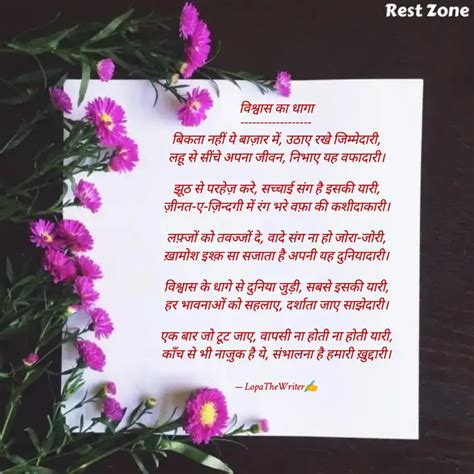 Rest Zone
विश्वास का धागा
------------------
बिकता नहीं ये बाज़ार में, उठाए रखे जिम्मेदारी,
लहू से सींचे अपना जीवन, निभाए यह वफादारी।
झूठ से परहेज़ करे, सच्चाई संग है इसकी यारी,
ज़ीनत-ए-ज़िन्दगी में रंग भरे वफ़ा की कशीदाकारी।
लफ़्जों को तवज्जों दे, वादे संग ना हो जोरा-जोरी,
ख़ामोश इश्क़ सा सजाता है अपनी यह दुनियादारी।
विश्वास के धागे से दुनिया जुड़ी, सबसे इसकी यारी,
हर भावनाओं को सहलाए, दर्शाता जाए साझेदारी।
एक बार जो टूट जाए, वापसी ना होती ना होती यारी,
काँच से भी नाज़ुक है ये, संभालना है हमारी ख़ुद्दारी।
— LopaTheWriter✍️